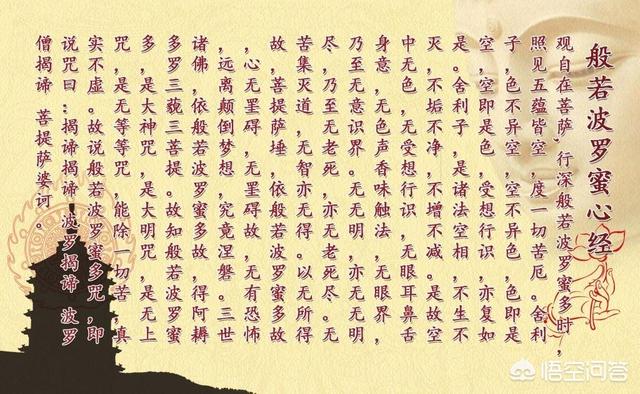 般若波罗蜜心经
观自在菩萨,行深般若波罗蜜多时,
照见五蕴皆空,度一切苦厄。舍利
子,色不异空,空不异色,色即是
空,空即是色,受想行识,亦复如
是。舍利子,是诸法空相,不生不
灭,不垢不净,不增不减。是故空
中无色,无受想行识,无眼耳鼻舌
身意,无色声香味触法,无眼界,
乃至无意识界。无无明,亦无无明
尽,乃至无老死,亦无老死尽。无
苦集灭道,无智亦无得。以无所得
故,菩提萨埵,依般若波罗蜜多故
,心无罣碍,无罣碍故,无有恐怖
,远离颠倒梦想,究竟涅磐。三世
诸佛,依般若波罗蜜多故,得阿耨
多罗三藐三菩提。故知般若波罗蜜
多,是大神咒,是大明咒,是无上
咒,是无等等咒,能除一切苦,真
实不虚。故说般若波罗蜜多咒,即
说咒曰:揭谛揭谛 波罗揭谛 波罗
僧揭谛 菩提萨婆诃。
悟空问答